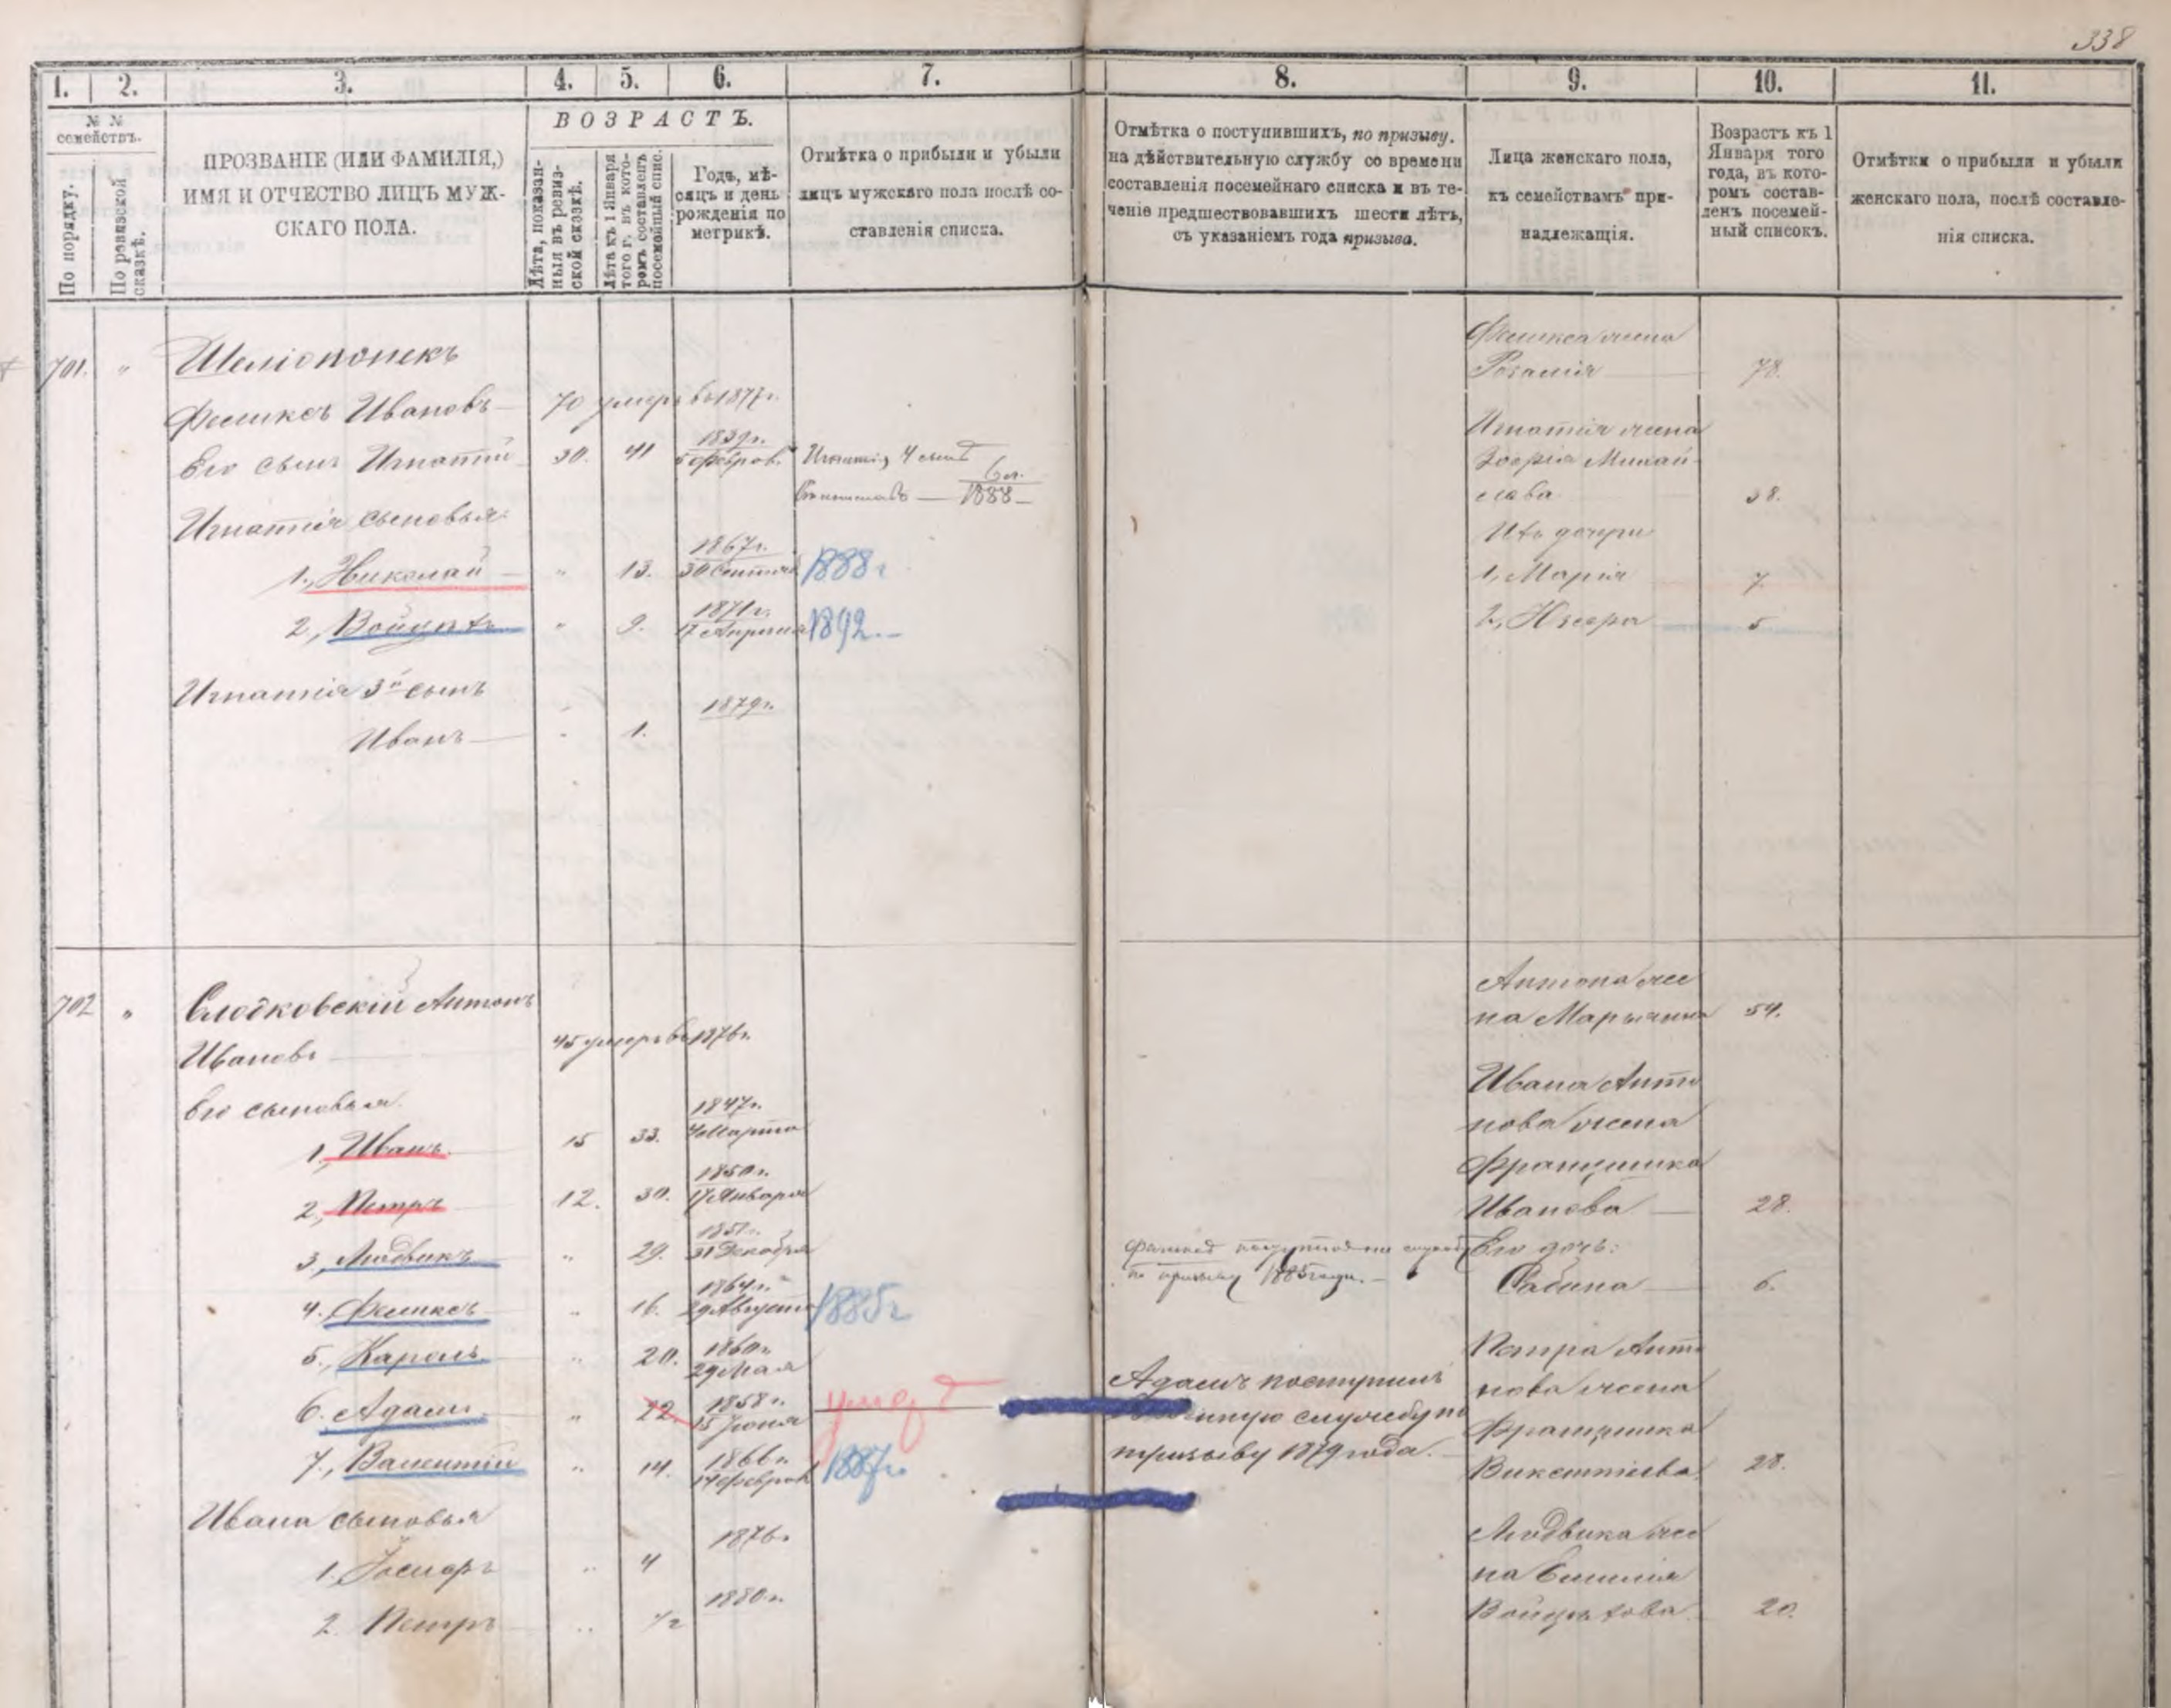 338
1. 2. 3. 4. 5. 6. 7. 8. 9. 10. 11.
№ №
семействъ.
По порядку.
По ревизской
сказкѣ.
ПРОЗВАНІЕ (ИЛИ ФАМИЛІЯ,)
ИМЯ И ОТЧЕСТВО ЛИЦЪ МУЖ-
СКАГО ПОЛА.
ВОЗРАСТЪ.
Лѣта, показан-
ныя въ ревиз-
ской сказкѣ.
Лѣта къ 1 Января
того г. въ кото-
ромъ составленъ
посемейный спис.
Годъ, мѣ-
сяцъ и день
рожденія по
метрикѣ.
Отмѣтка о прибыли и убыли
лицъ мужскаго пола послѣ со-
ставленія списка.
Отмѣтка о поступившихъ, по призыву.
на дѣйствительную службу со времени
составленія посемейнаго списка и въ те-
ченіе предшествовавшихъ шести лѣтъ,
съ указаніемъ года призыва.
Лица женскаго пола,
къ семействамъ при-
надлежащія.
Возрастъ къ 1
Января того
года, въ кото-
ромъ состав-
ленъ посемей-
ный списокъ.
Отмѣтки о прибыли и убыли
женскаго пола, послѣ составле-
нія списка.
701. "
Феликсъ Ивановъ 70 умеръ въ 1877г.
Его сынъ Игнатій 30. 41 1839г.
5 Феврал.
Игнатія 4 сынъ
1888
Игнатія сыновья:
1., Николай " 13. 1867г.
30 Сентяб 1888г
2., Войцѣхъ " 9. 1871г.
17 Апрѣля 1892.
Игнатія 3й сынъ
Иванъ 1. 1879г.
Феликса жена
Розалія 78.
Игнатія жена
Зофія Михай-
лова 38.
Ихъ дочери
1, Марія 7.
2, Юзефа 5
702 "
Антонъ
Ивановъ 45 умеръ въ 1876г.
Его сыновья.
1., Иванъ 15 33. 1847г.
4 Марта
2., Петръ 12. 30. 1850г.
17 Января
3., Людвикъ " 29. 1851г.
31 Декабря
4. Феликсъ " 16. 1864г.
29 Августа 1885г
5., Кароль " 20. 1860г.
29 Мая
6. Адамъ " 22 1858г.
15 Іюня
7., Валентій " 14. 1866г.
14 Феврал 1887г.
Ивана сыновья
1. Іосифъ " 4 1876г.
2. Петръ " 1/2 1880г.
по призыву 1885 года.
Адамъ поступилъ
службу по
призыву 1879 года.
Антона же
на Марьянна 54.
Ивана Анто
нова жена
Францишка
Иванова 28.
Его дочь:
Сабина 6.
Петра Анто
нова жена
Францишка
Викентіева 28.
Людвика же
на Емилія
Войцѣхова 20.